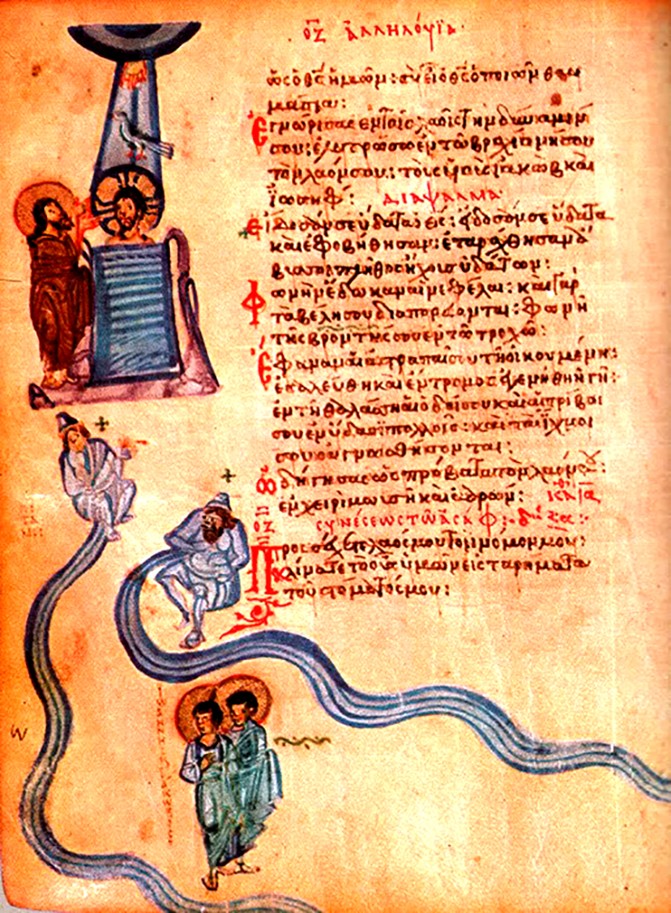 οζ ἀλληλούϊα
ὡς ὁ θς ἡμῶν: σὺ εἶ ὁ θς ὁ ποιῶν θαυ
μάσια:
Ἐγνώρισας ἐν τοῖς λαοῖς τὴν δύναμίν
σου: ἐλυτρώσω ἐν τῷ βραχίονί σου
τὸν λαόν σου: τοὺς υἱοὺς ἰακὼβ καὶ
ἰωσήφ: ΔΙΑΨΑΛΜΑ
Εἴδοσάν σε ὕδατα ὁ θς: εἴδοσάν σε ὕδατα
καὶ ἐφοβήθησαν: ἐταράχθησαν ἄ
βυσσοι πλῆθος ἤχους ὑδάτων:
Φωνὴν ἔδωκαν αἱ νεφέλαι: καὶ γὰρ
τὰ βέλη σου διαπορεύονται: φωνὴ
τῆς βροντῆς σου ἐν τῷ τροχῷ:
Ἔφαναν αἱ ἀστραπαί σου τῇ οἰκουμένῃ:
ἐσαλεύθη καὶ ἔντρομος ἐγενήθη ἡ γῆ:
ἐν τῇ θαλάσσῃ αἱ ὁδοί σου καὶ αἱ τρίβοι
σου ἐν ὕδασι πολλοῖς: καὶ τὰ ἴχνη
σου οὐ γνωσθήσονται:
Ὡδήγησας ὡς πρόβατα τὸν λαόν σου:
ἐν χειρὶ μωυσῆ καὶ ἀαρών:
οζ συνέσεως τῷ ἀσάφ:
Προσέχετε λαός μου τὸν νόμον μου:
κλίνατε τὸ οὖς ὑμῶν εἰς τὰ ῥήματα
τοῦ στόματός μου: